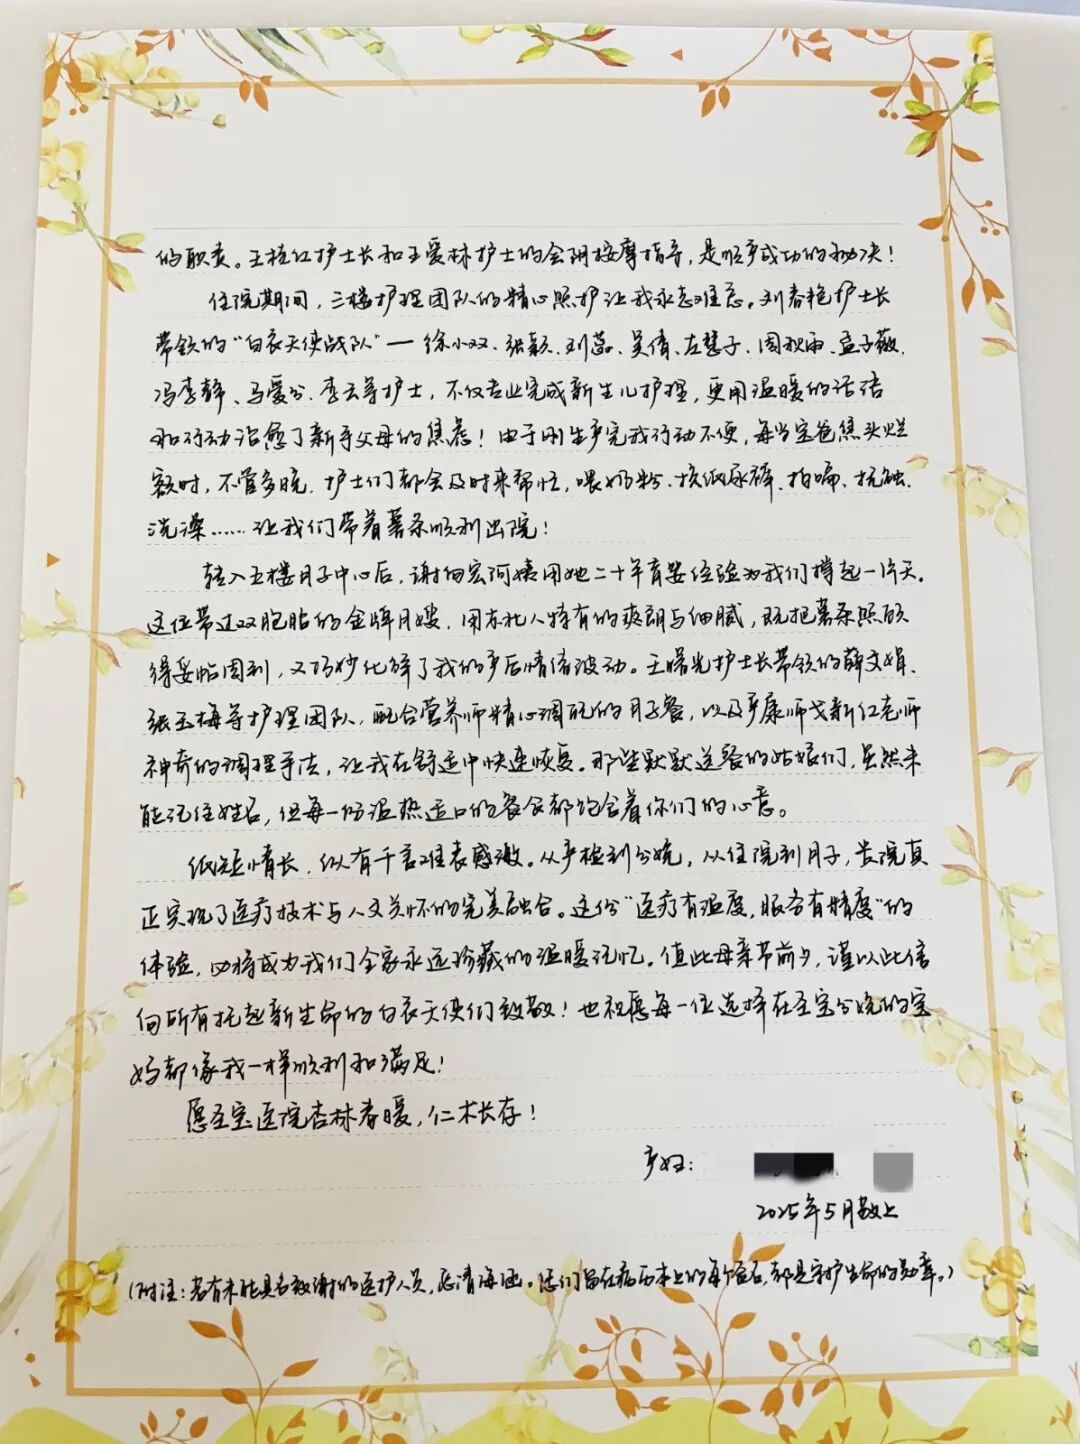 的职责。王桂红护士长和王爱林护士的会阴按摩指导，是顺产成功的秘决！
住院期间，三楼护理团队的精心照护让我永志难忘。刘春艳护士长
带领的“白衣天使战队”—徐小双、张颖、刘蕊、吴倩、左慧子、周秋雨、孟子薇、
冯李静、马爱公、李云等护士，不仅专业完成新生儿护理，更用温暖的话语
和行动治愈了新手父母的焦虑！由于刚生产完我行动不便，每当宝爸焦头烂
额时，不管多晚，护士们都会及时来帮忙，喂奶粉、换纸尿裤、拍嗝、抚触、
洗澡……让我们带着薯条顺利出院！
转入五楼月子中心后，谢丽宏阿姨用她二十年育婴经验为我们撑起一片天。
这位带过双胞胎的金牌月嫂，用东北人特有的爽朗与细腻，既把薯条照顾
得妥帖周到，又巧妙化解了我的产后情绪波动。王曙光护士长带领的薛文娟、
张玉梅等护理团队，配合营养师精心调配的月子餐，以及产康师戈新红老师
神奇的调理手法，让我在舒适中快速恢复。那些默默送餐的姑娘们，虽然未
能记住姓名，但每一份温热适口的餐食都饱含着你们的心意。
纸短情长，纵有千言难表感激。从产检到分娩，从住院到月子，贵院真
正实现了医疗技术与人文关怀的完美融合。这份“医疗有温度，服务有精度”的
体验，必将成为我们全家永远珍藏的温暖记忆。值此母亲节前夕，谨以此信
向所有托起新生命的白衣天使们致敬！也祝愿每一位选择在圣宝分娩的宝
妈都像我一样顺利和满足！
愿圣宝医院杏林春暖，仁术长存！
产妇：
2025年5月敬上
（附注：若有未能具名致谢的医护人员，恳请海涵。您们留在病历本上的每个签名，都是守护生命的勋章。）